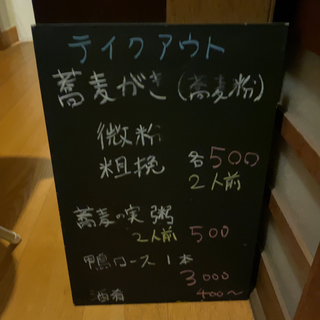 テイクアウト
蕎麦がき(蕎麦粉)
微粉
粗挽 各500
2人前
蕎麦の実粥
2人前 500
鴨ロース1本
3000
酒肴 400〜